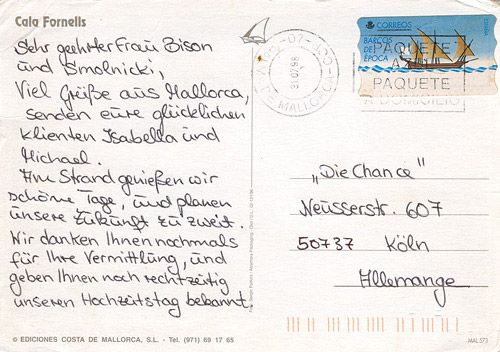 Cala Fornells
Sehr geehrter Frau Bison
und Smolnicki,
Viel Grüße aus Mallorca,
senden eure glücklichen
klienten Isabella und
Michael.
Am Strand genießen wir
schöne Tage, und planen
unsere Zukunft zu zweit.
Wir danken Ihnen nochmals
für Ihre Vermittlung, und
geben Ihnen noch rechtzeitig
unseren Hochzeitstag bekannt.
© EDICIONES COSTA DE MALLORCA, S.L. - Tel. (971) 69 17 65
07400
31 07 98
DE MALLORCA
CORREOS
BARCOS
DE
EPOCA
PAQUETE
A
PAQUETE
A DOMICILIO
„Die Chance"
Neusserstr. 607
50737 Köln
Allemange
MAL 573